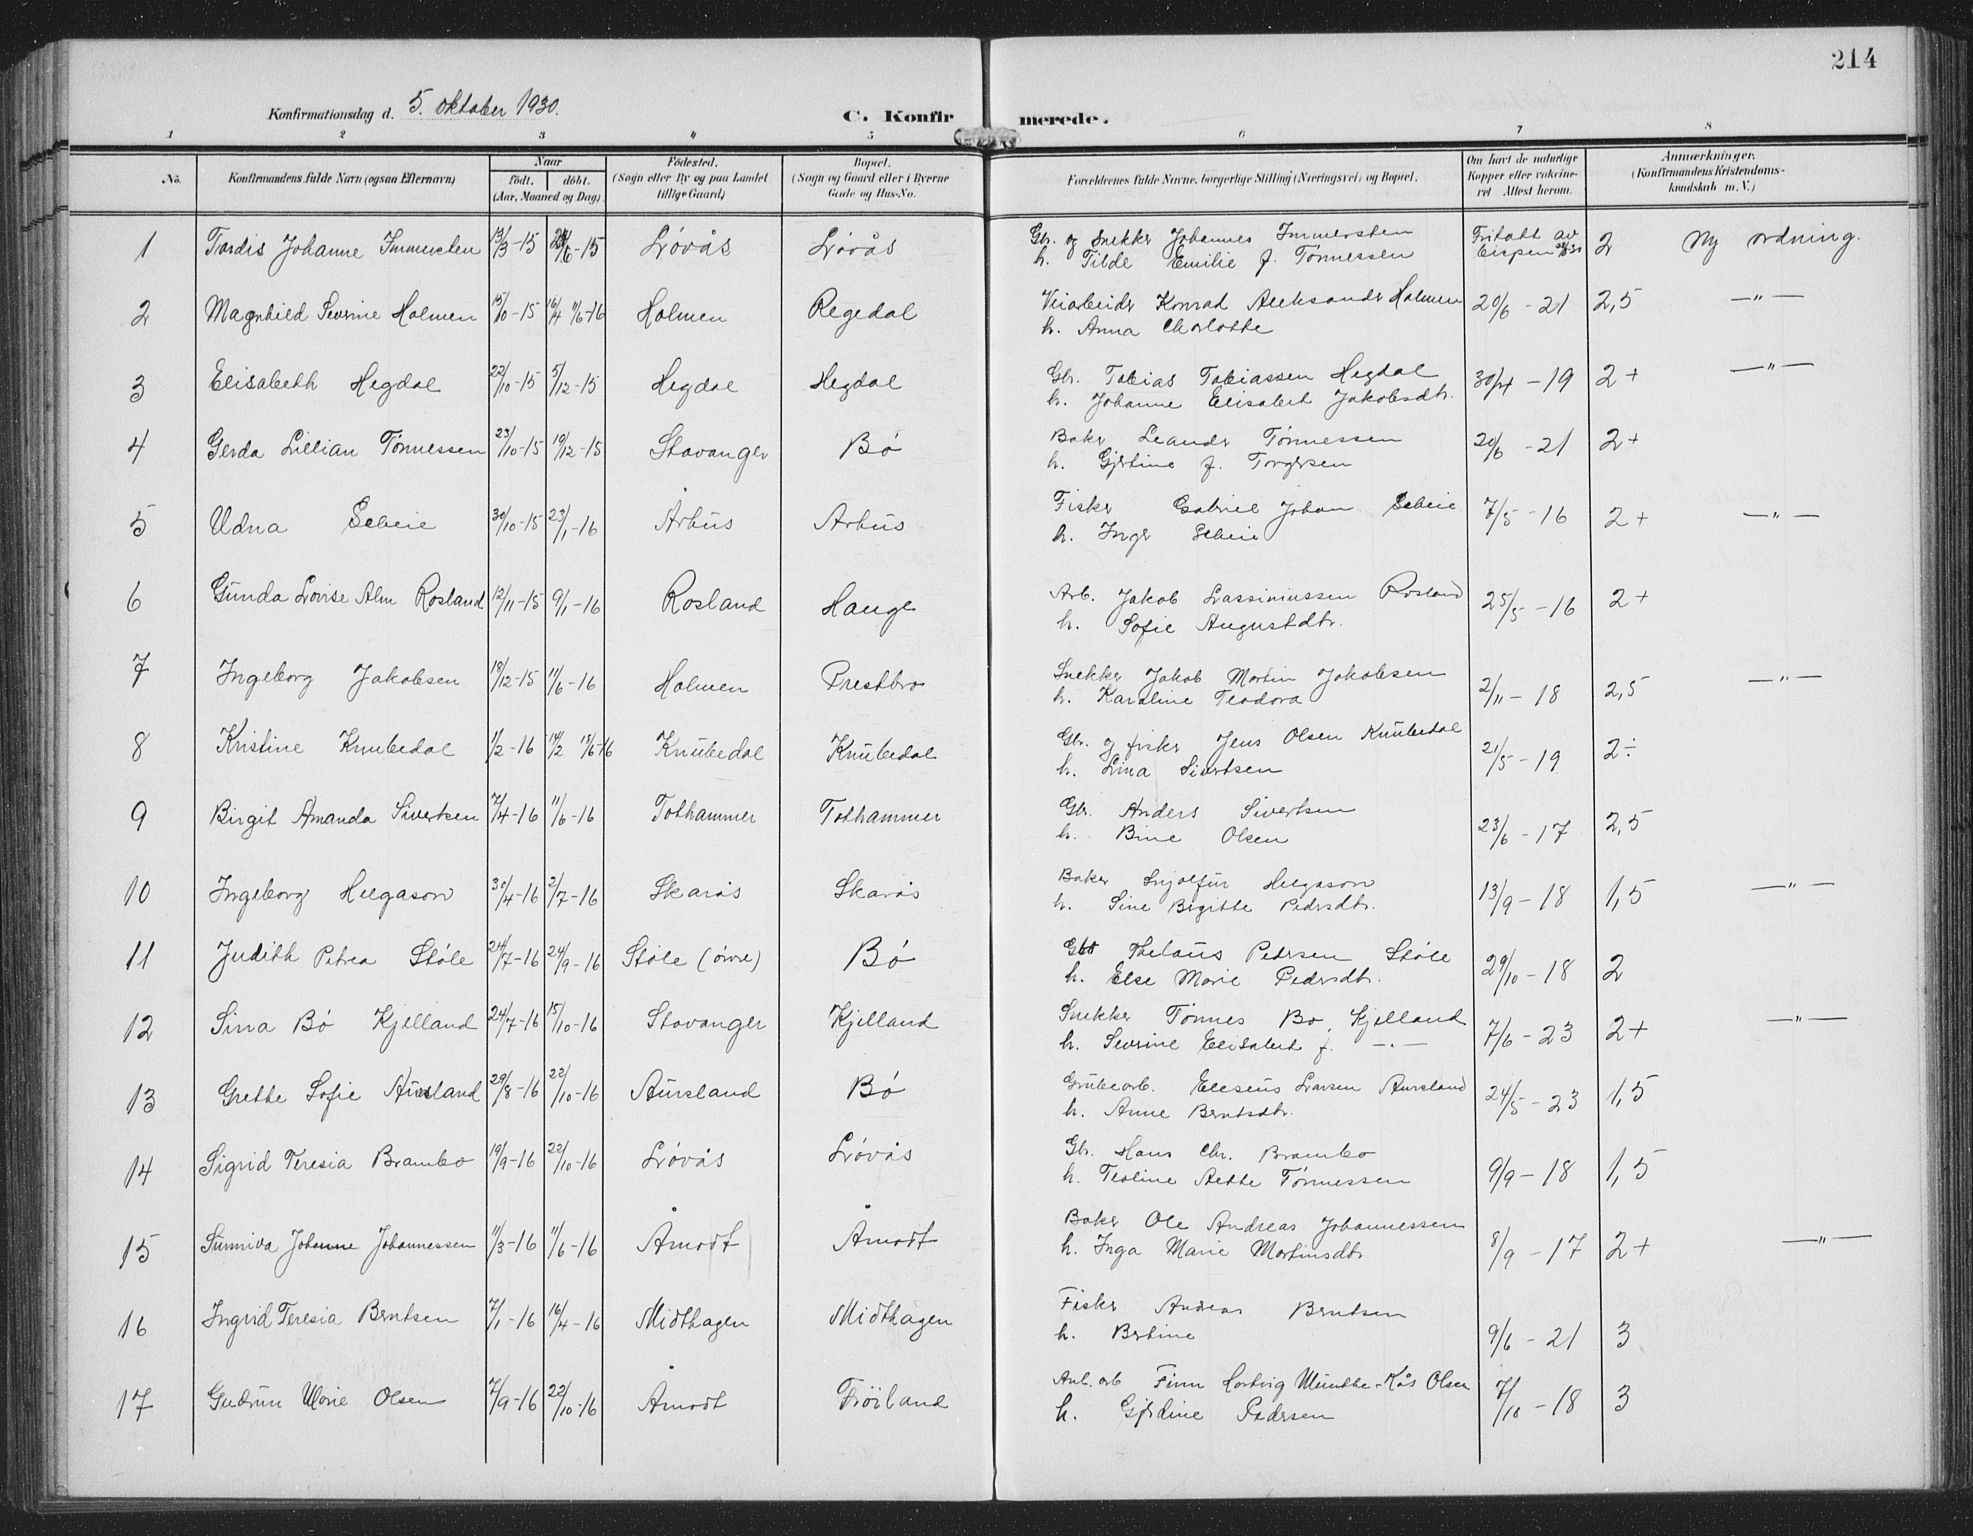 214
Konfirmationsdag d. 5. oktober 1930.
C. Konfirmerede.
1 2 3 4 5 6 7 8
No.
Konfirmandens fulde Navn (ogsaa Efternavn)
Naar
født. døbt.
(Aar, Maaned og Dag)
Fødested.
(Sogn eller By og paa Landet
tillige Gaard)
Bopæl.
(Sogn og Gaard eller i Byerne
Gade og Hus-No.
Forældrenes fulde Navne, borgerlige Stilling (Næringsvei) og Bopæl.
Om havt de naturlige
Kopper eller vaccineret
Attest herom.
Anmærkninger.
(Konfirmandens Kristendomskundskab
m. V.)
1 Tordis Johanne Immersten 13/3-15 /6-15 Løvås Løvås Gbr. og snekker Johannes Immersten Fritatt av 2 Ny ordning.
h. Tilde Emilie f. Tønnessen
2 Magnhild Severine Holmen 15/10-15 16/4 11/6-16 Holmen Regedal Veiarbeider Konrad Aleksander Holmen 20/6-21 2,5 —"—
h. Anna Charlotte
3 Elisabeth Hegdal 22/10-15 5/12-15 Hegdal Hegdal Gbr. Tobias Tobiassen Hegdal 30/4-19 2+ —"—
h. Johanne Elisabet Jakobsdtr.
4 Gerda Lillian Tønnessen 23/10-15 19/12-15 Stavanger Bø Baker Leander Tønnessen 20/6-21 2+
h. Gjertine f. Torgersen
5 Udna Seleie 30/10-15 23/1-16 Århus Århus Fisker Gabriel Johan Seleie 7/5-16 2+ —"—
h. Inger Seleie
6 Gunda Lovise Alm Rosland 12/11-15 9/1-16 Rosland Hauge Arb. Jakob Lassiniussen Rosland 25/5-16 2+
h. Sofie Augustdtr.
7 Ingeborg Jakobsen 18/12-15 11/6-16 Holmen Prestbro Snekker Jakob Martin Jakobsen 2/11-18 2,5 —"—
h. Karoline Teodora
8 Kristine Knubedal 1/2-16 14/2 15/6-16 Knubedal Knubedal Gbr. og fisker Jens Olsen Knubedal 21/5-19 2÷
h. Lina Sivertsen
9 Birgit Amanda Sivertsen 7/4-16 11/6-16 Tothammer Tothammer Gbr. Anders Sivertsen 23/6-17 2,5
h. Bine Olsen
10 Ingeborg Helgason 30/4-16 2/7-16 Skarås Skarås Baker Snjolfur Helgason 13/9-18 1,5 —"—
h. Sine Birgitte Pedersdtr.
11 Judith Petrea Støle 24/7-16 24/9-16 Støle (øvre) Bø Thelaus Pedersen Støle 29/10-18 2
h. Else Marie Pedersdtr.
12 Sina Bø Kjelland 24/7-16 15/10-16 Stavanger Kjelland Snekker Tønnes Bø, Kjelland 7/6-23 2+ —"—
h. Severine Elisabet f. —"—
13 Grethe Sofie Aursland 29/8-16 22/10-16 Aursland Bø Grubearb. Eleseus Larsen Aursland 24/5-23 1,5
h. Anne Berntsdtr.
14 Sigrid Teresia Brambo 19/9-16 22/10-16 Løvås Løvås Gbr. Hans Chr. Brambo 9/9-18 1,5
h. Teoline Aette Tønnessen
15 Sunniva Johanne Johannessen 11/3-16 11/6-16 Åmodt Åmodt Baker Ole Andreas Johannessen 8/9-17 2+ —"—
h. Inga Marie Martinsdtr.
16 Ingrid Teresia Berntsen 7/1-16 16/4-16 Midthagen Midthagen Fisker Andreas Berntsen 9/6-21 3
h. Bertine
17 Gudrun Marie Olsen 7/9-16 22/10-16 Åmodt Frøiland Anl. arb Finn Hartvig Munthe-Kås Olsen 7/10-18 3
h. Gjerdine Pedersen